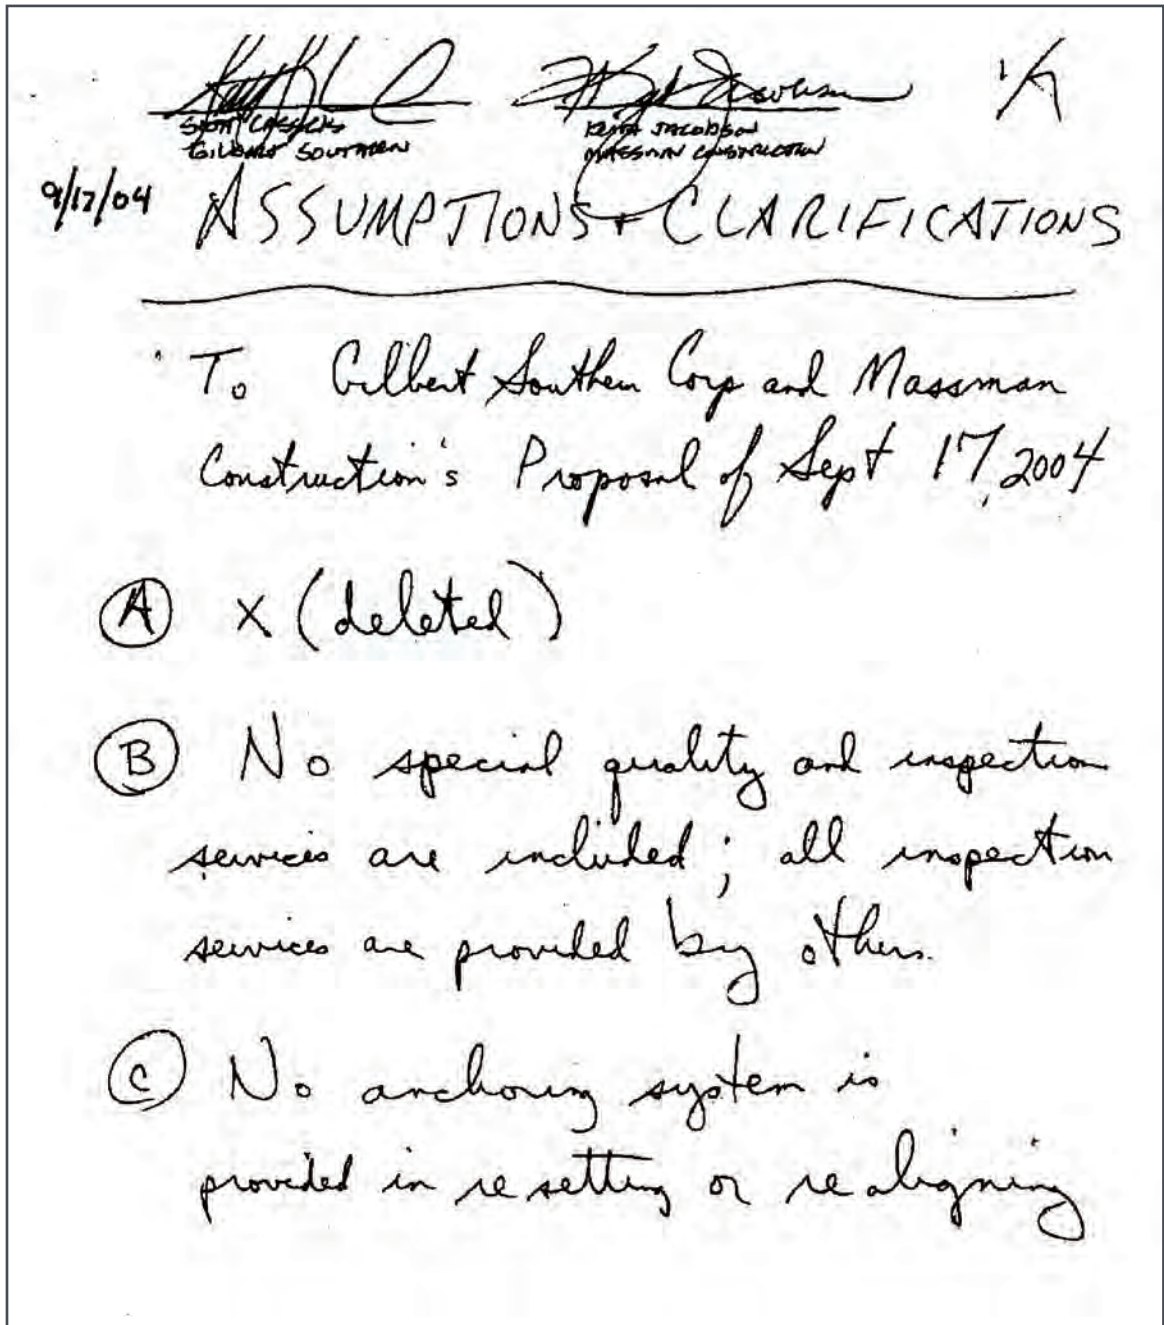 SCOTT CASSELS KEITH JACOBSON
GILBERT SOUTHERN MASSMAN CONSTRUCTION
9/17/04 ASSUMPTIONS + CLARIFICATIONS
To Gilbert Southern Corp and Massman
Construction's Proposal of Sept 17, 2004
A X (deleted)
B No special quality and inspection
services are included; all inspection
services are provided by others.
C No anchoring system is
provided in resetting or realigning